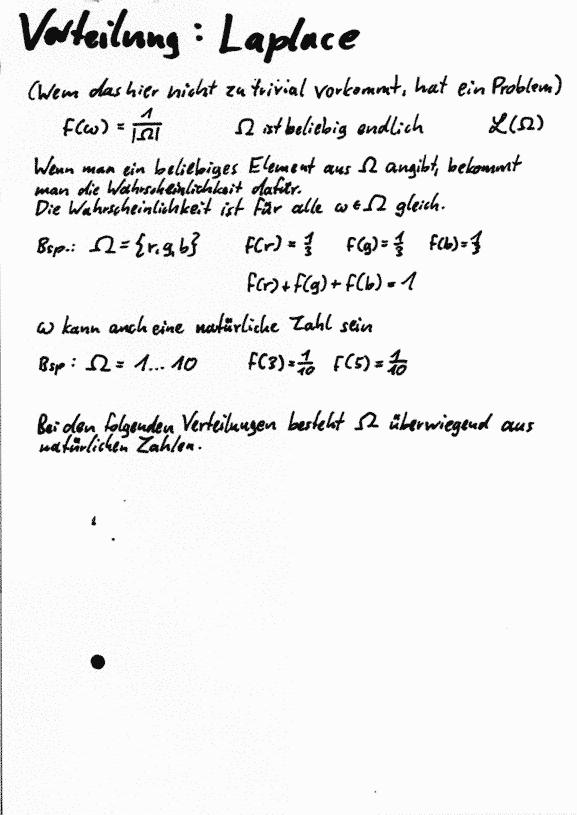 Verteilung: Laplace
(Wem das hier nicht zu trivial vorkommt, hat ein Problem)
f(ω) = 1/|Ω| Ω ist beliebig endlich ℒ(Ω)
Wenn man ein beliebiges Element aus Ω angibt, bekommt
man die Wahrscheinlichkeit dafür.
Die Wahrscheinlichkeit ist für alle ω ∈ Ω gleich.
Bsp.: Ω = {r,g,b} f(r) = 1/3 f(g) = 1/3 f(b) = 1/3
f(r) + f(g) + f(b) = 1
ω kann auch eine natürliche Zahl sein
Bsp: Ω = 1...10 f(3) = 1/10 f(5) = 1/10
Bei den folgenden Verteilungen besteht Ω überwiegend aus
natürlichen Zahlen.